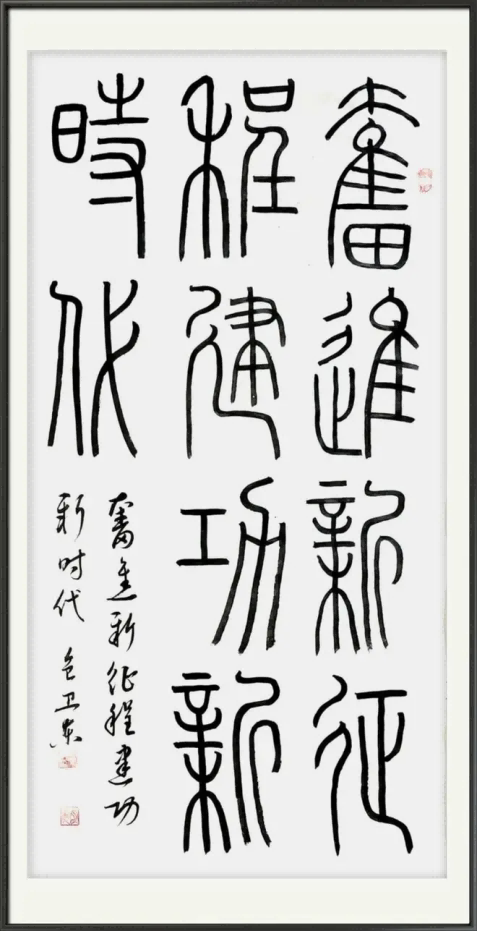 奮進新征
程建功新
時代
奮進新征程建功
新時代
包卫东